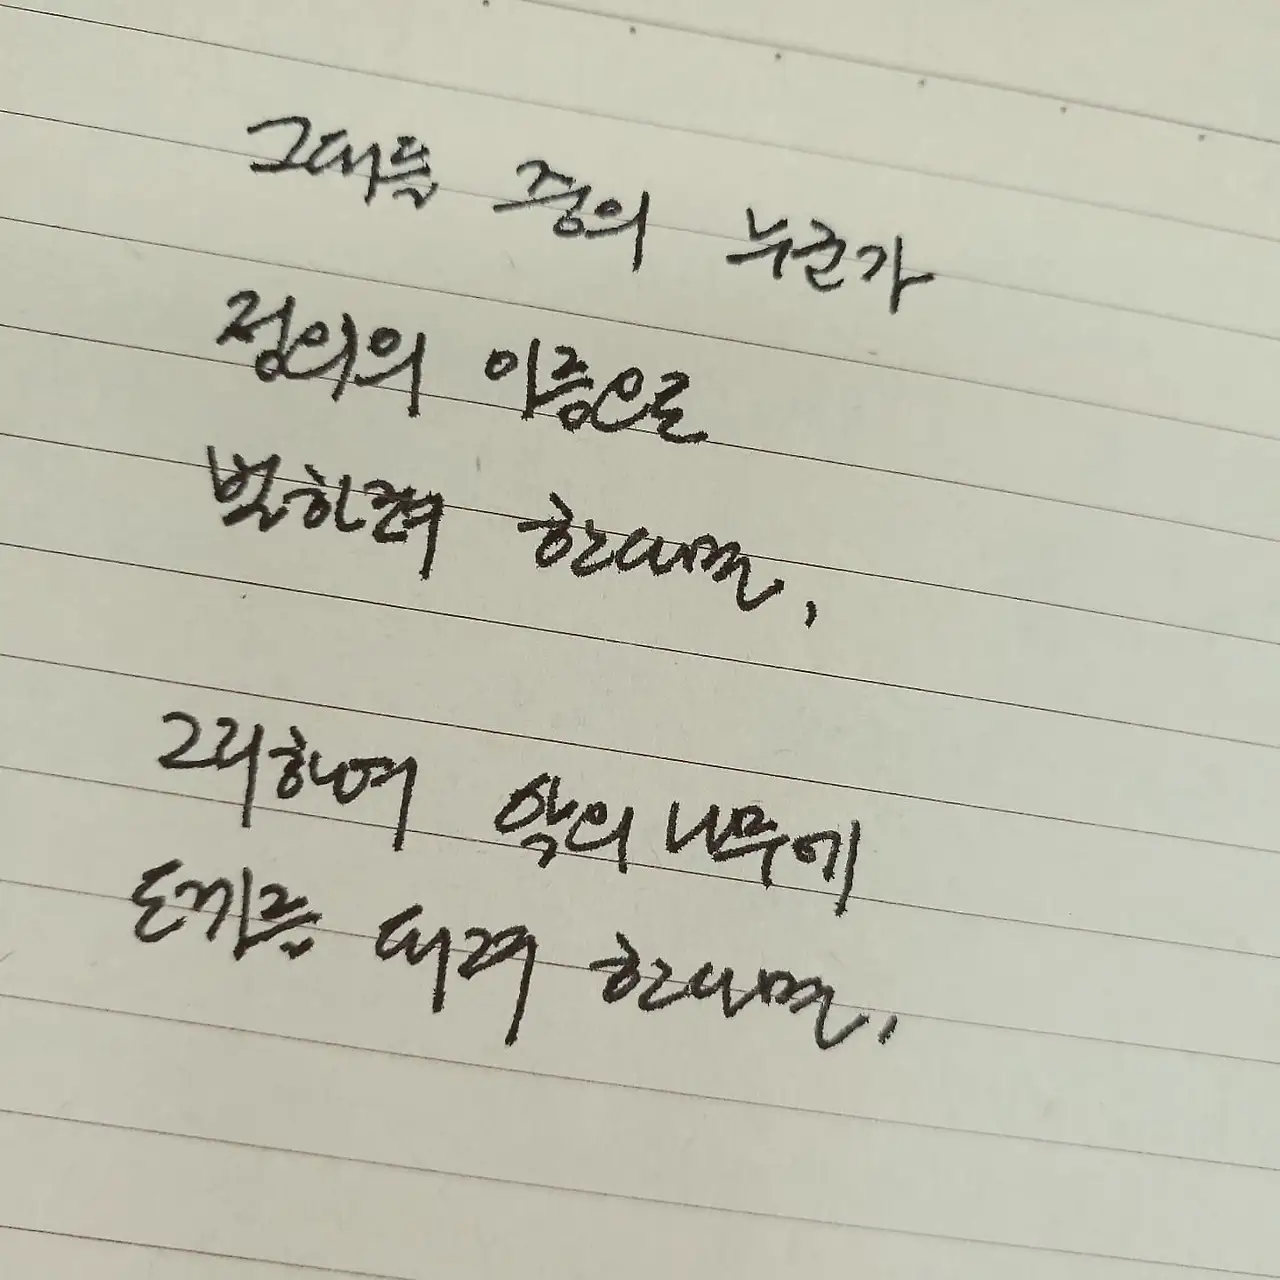 그대들 중의 누군가
정의의 이름으로
벌하려 한다면,
그리하여 악의 나무에
도끼를 대려 한다면,